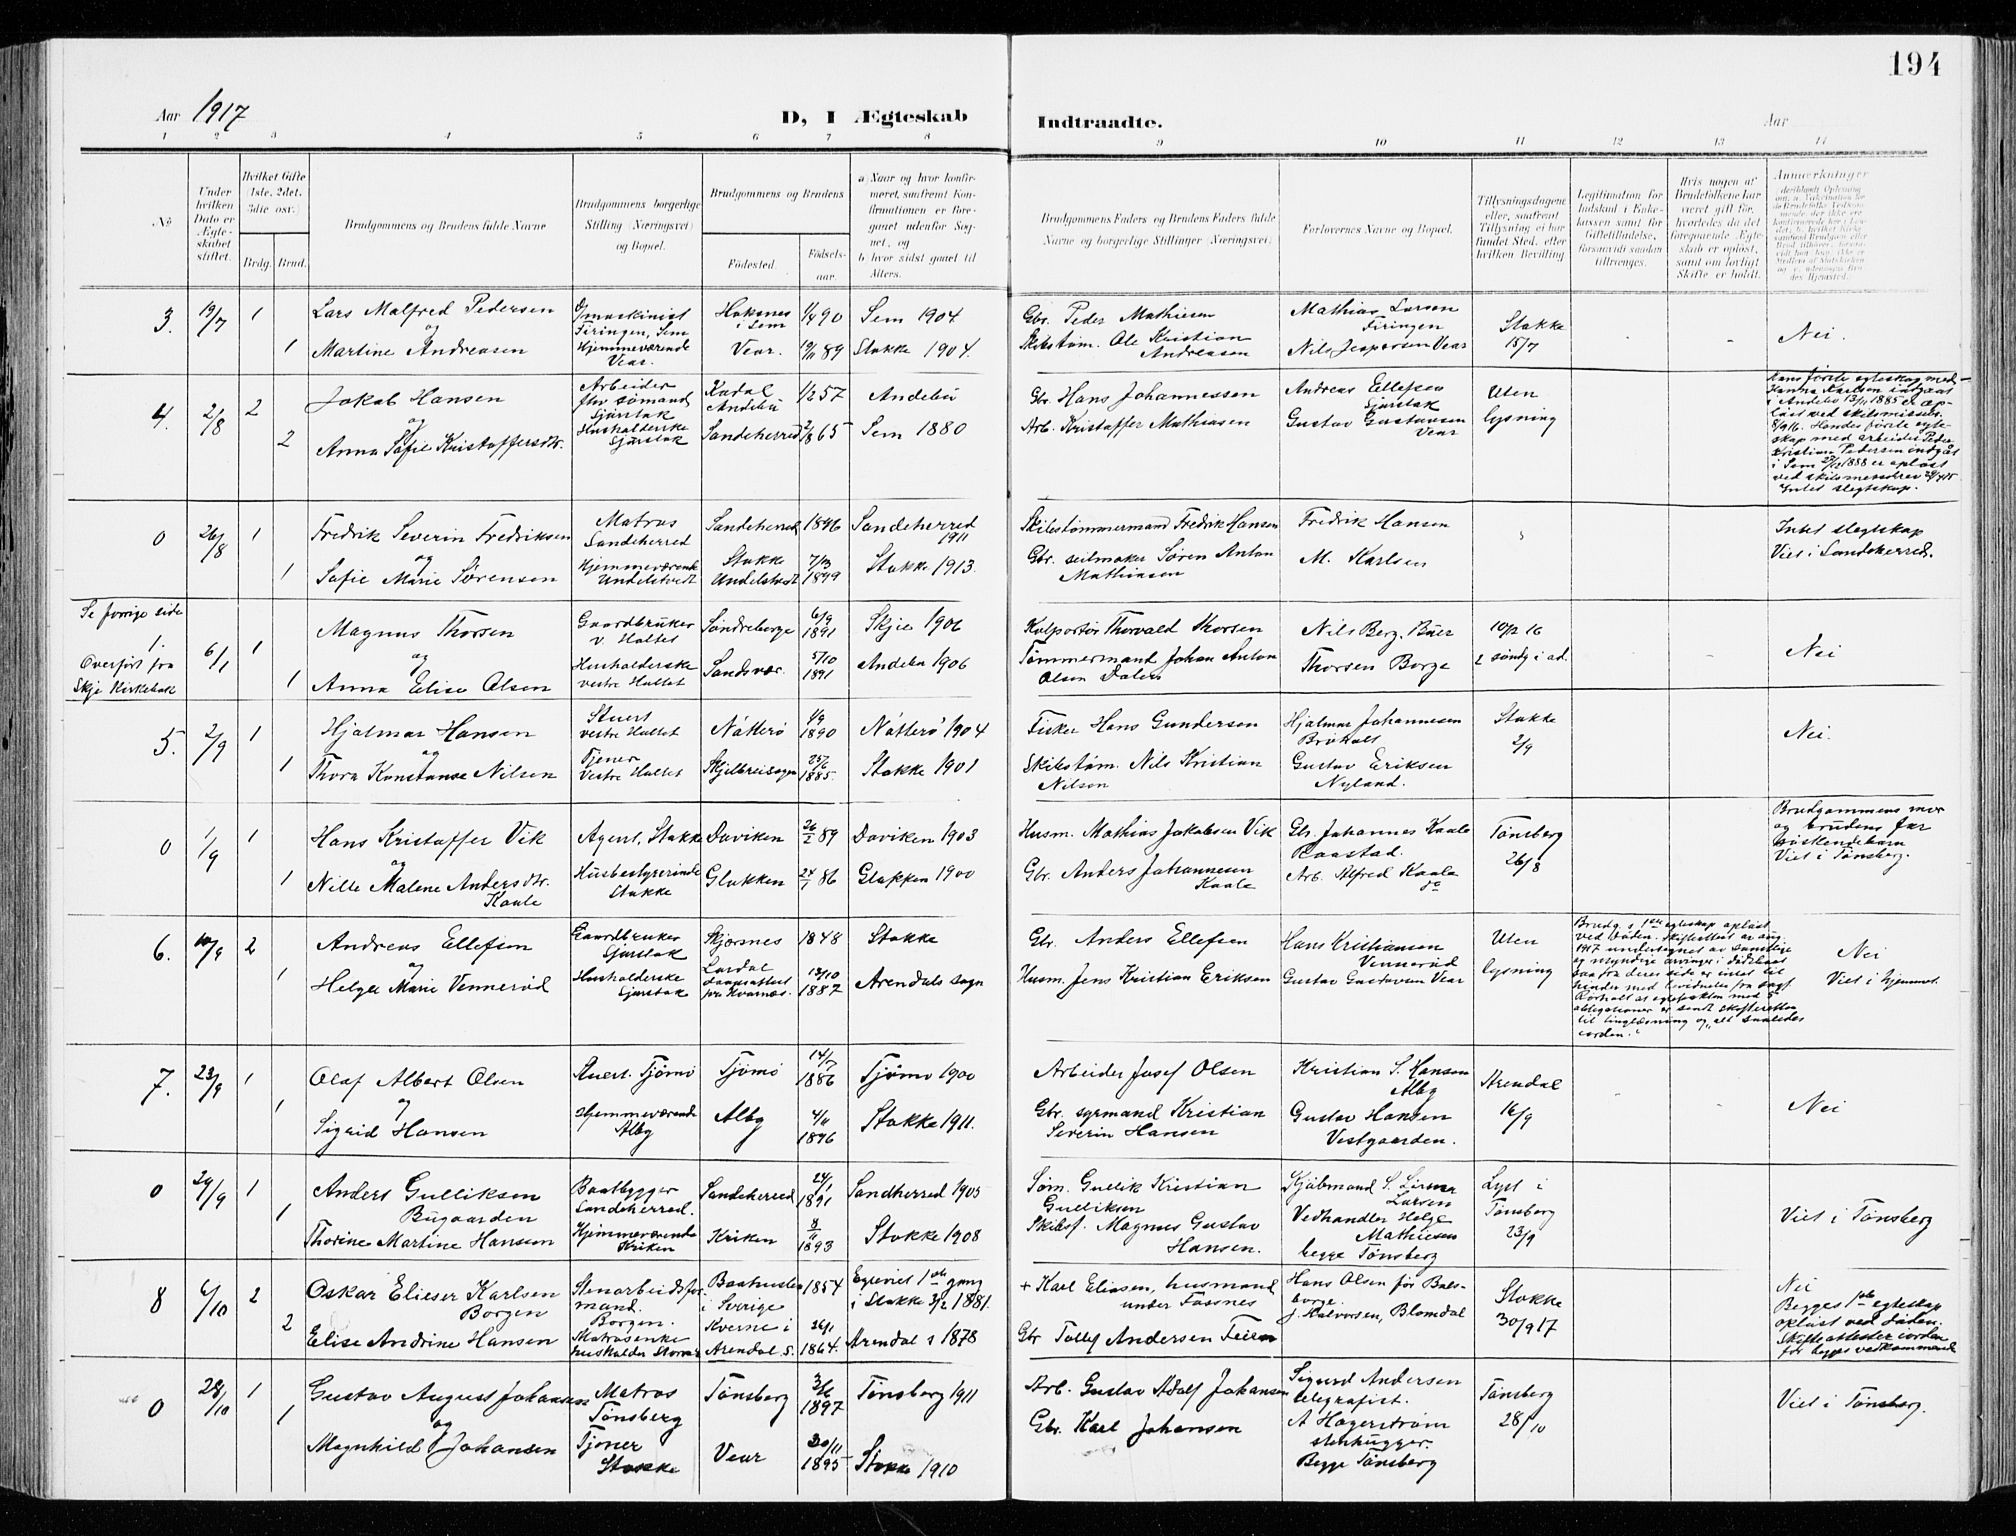 194
Aar 1917
D, I Ægteskab
Indtraadte.
Aar
1 2 3 4 5 6 7 8 9 10 11 12 13 14
No
Under hvilken Dato er Ægteskabet stiftet.
Hvilket Gifte (1ste, 2det, 3die osv.)
Brdg. Brud.
Brudgommens og Brudens fulde Navne
Brudgommens borgerlige Stilling (Næringsvei) og Bopæl.
Brudgommens og Brudens
Födested. Födsels-aar.
a) Naar og hvor konfirmeret, saafremt Konfirmationen er foregaaet udenfor Sognet, og
b) hvor sidst gaaet til Alters.
Brudgommens Faders og Brudens Faders fulde Navne og borgerlige Stillinger (Næringsvei).
Forlovernes Navne og Bopæl.
Tillysningsdagene eller, saafremt Tillysning ei har fundet Sted, efter hvilken Bevilling.
Legitimation for Indskud i Enkekassen samt for Giftetilladelse, forsaavidt saadan tiltrænges.
Hvis nogen af Brudefolkene har været gift för, hvorledes da det foregaaende Ægteskab er oplöst, samt om lovligt Skifte er holdt.
Anmærkninger
3. 19/7 1 Lars Malfred Pedersen
og
1 Martine Andreasen
maskinist Firingen, Sem
Hjemmeværende Vear.
Haksnes i Sem 1/4 90 Sem 1904.
Vear. 19/11 89 Stokke 1904.
Gbr. Peder Mathisen
Skibstøm. Ole Kristian Andreasen
Mathias Larsen Firingen
Nils Jespersen Vear
Stokke 15/7
Nei.
4. 2/8 2 Jakob Hansen
og
2 Anna Sofie Kristoffersdtr.
Arbeider fhv sømand Sjuestok
Husholderske Sjuestok
Kodal Andebu 1/2 57 Andebu
Sandeherred 2/8 65 Sem 1880
Gbr. Hans Johannessen
Arb. Kristoffer Mathiasen
Andreas Ellefsen Sjuestok
Gustav Gustavsen Vear
Uten lysning
Hans første egteskap med
Hanna Karlsen indgaat
i Andebu 13/11 1885 er op-
løst ved skilsmissebr.
8/9 16. Hendes første egte-
skap med arbeider Peder
Kristian Pedersen indgåt
i Sem 27/12 1888 er opløst
ved skilsmissebrev
Intet slegtskap.
0 26/8 1 Fredrik Severin Fredriksen
og
1 Sofie Marie Sørensen
Matros Sandeherred
Hjemmeværende Undelstvedt
Sandeherred 1896 Sandeherred 1911
Stokke Undelstvedt 7/12 1899 Stokke 1913.
Skibstømmermand Fredrik Hansen
Gbr. seilmaker Søren Anton Mathiasen
Fredrik Hansen
M. Karlsen
Intet slegtskap
Viet i Sandeherred.
Se forrige side
1.
Overført fra
Skje Kirkebok
6/1 1 Magnus Thorsen
og
1 Anna Elise Olsen
Gaardbruker v. Holtet
Husholderske vestre Holtet
Søndreborge 6/9 1891 Skjee 1906
Sandsvær. 5/10 1891 Andebu 1906
Kolportør Thorvald Thorsen
Tømmermand Johan Anton Olsen Dalers
Nils Berg, Buer
Thorsen Borge
10/12 16
2 söndg i ad.
Nei
5. 2/9 1 Hjalmar Hansen
og
1 Thora Konstanse Nilsen
Stuert vestre Holtet
Tjener Vestre Holtet
Nøtterø 1/9 1890 Nøtterø 1904
Skjelbreisogn 25/6 1885. Stokke 1901
Fisker Hans Gundersen
Skibstøm. Nils Kristian Nilsen
Hjalmar Johannesen Brøholt
Gustav Eriksen Nyland.
Stokke 2/9
Nei.
0 1/9 1 Hans Kristoffer Vik
og
1 Nille Malene Andersdtr. Kaale
Agent, Stokke
Husbestyrerinde Stokke
Daviken 26/2 89 Daviken 1903
Glokken 24/1 86 Glokken 1900
Husm. Mathias Jakobsen Vik
Gbr. Anders Johannesen Kaale
Gbr. Johannes Kaale Raastad.
Arb. Alfred Kaale do
Tønsberg 26/8
Brudgommens mor
og brudens far
søskendebarn
Viet i Tønsberg.
6. 10/9 2 Andreas Ellefsen
og
1 Helga Marie Vennerød
Gaardbruker Sjuestok
Husholderske Sjuestok
Skjærsnes 1848 Stokke
Lardal 13/10 1887 Arendals sogn
Gbr. Anders Ellefsen
Husm. Jens Kristian Eriksen
Hans Kristiansen Vennerød
Gustav Gustavsen Vear
Uten lysning
Brudg.s 1ste egteskap opløst
ved døden. Skifteattest av aug.
1917 undertegnet av samtlige
og myndige arvinger i dødsboet
Nei
Viet i hjemmet.
7. 23/9 1 Olaf Albert Olsen
og
1 Sigrid Hansen
Stuert. Tjømø
Hjemmeværende Alby
Tjømø 14/7 1886 Tjømø 1900
Alby 4/11 1896 Stokke 1911.
Arbeider Josef Olsen
Gbr. syrmand Kristian Severin Hansen
Kristian S. Hansen Alby
Gustav Hansen Vestgaarden.
Arendal 16/9
Nei
0 29/9 1 Anders Gulliksen Bugaarden
1 Thorine Martine Hansen
Baatbygger Sandeherred.
Hjemmeværende Kriken
Sandeherred 24/1 1891 Sandherred 1905
Kriken 8/11 1893 Stokke 1908
Søm. Gullik Kristian Gulliksen
Skibsf. Magnus Gustav Hansen.
Kjøbmand S. Larsen
Vedhandler Helge Mathiesen
begge Tønsberg
Lyst i Tønsberg 23/9
Viet i Tønsberg
8 6/10 2 Oskar Elieser Karlsen Borgen
2 Elise Andrine Hansen
Stenarbeidsformand. Borgen.
Matrosenke husholder
Baahuslen i Sverige 1854 Egteviet 1ste gang i Stokke 3/2 1881.
Kverne i Arendal s. 26/1 1864. Arendal s 1878
+ Karl Eliasen, husmand under Fossnes
Gbr Tollef Andersen Feien
Hans Olsen før Bolsborge.
J. Halvorsen, Blomdal
Stokke 30/9 17
Nei
Begges 1ste egteskap
opløst ved døden.
Skifteattester iorden
for begges vedkommende
0 28/10 1 Gustav August Johansen
og
1 Magnhild Johansen
Matros Tønsberg
Tjener Stokke
Tønsberg 1897 Tønsberg 1911
Vear 20/11 1895 Stokke 1910
Arb. Gustav Adolf Johansen
Gbr. Karl Johansen
Sigurd Andersen telegrafist.
A Hagerstrøm stenhugger.
Begge Tønsberg
Tønsberg 28/10
Viet i Tønsberg.